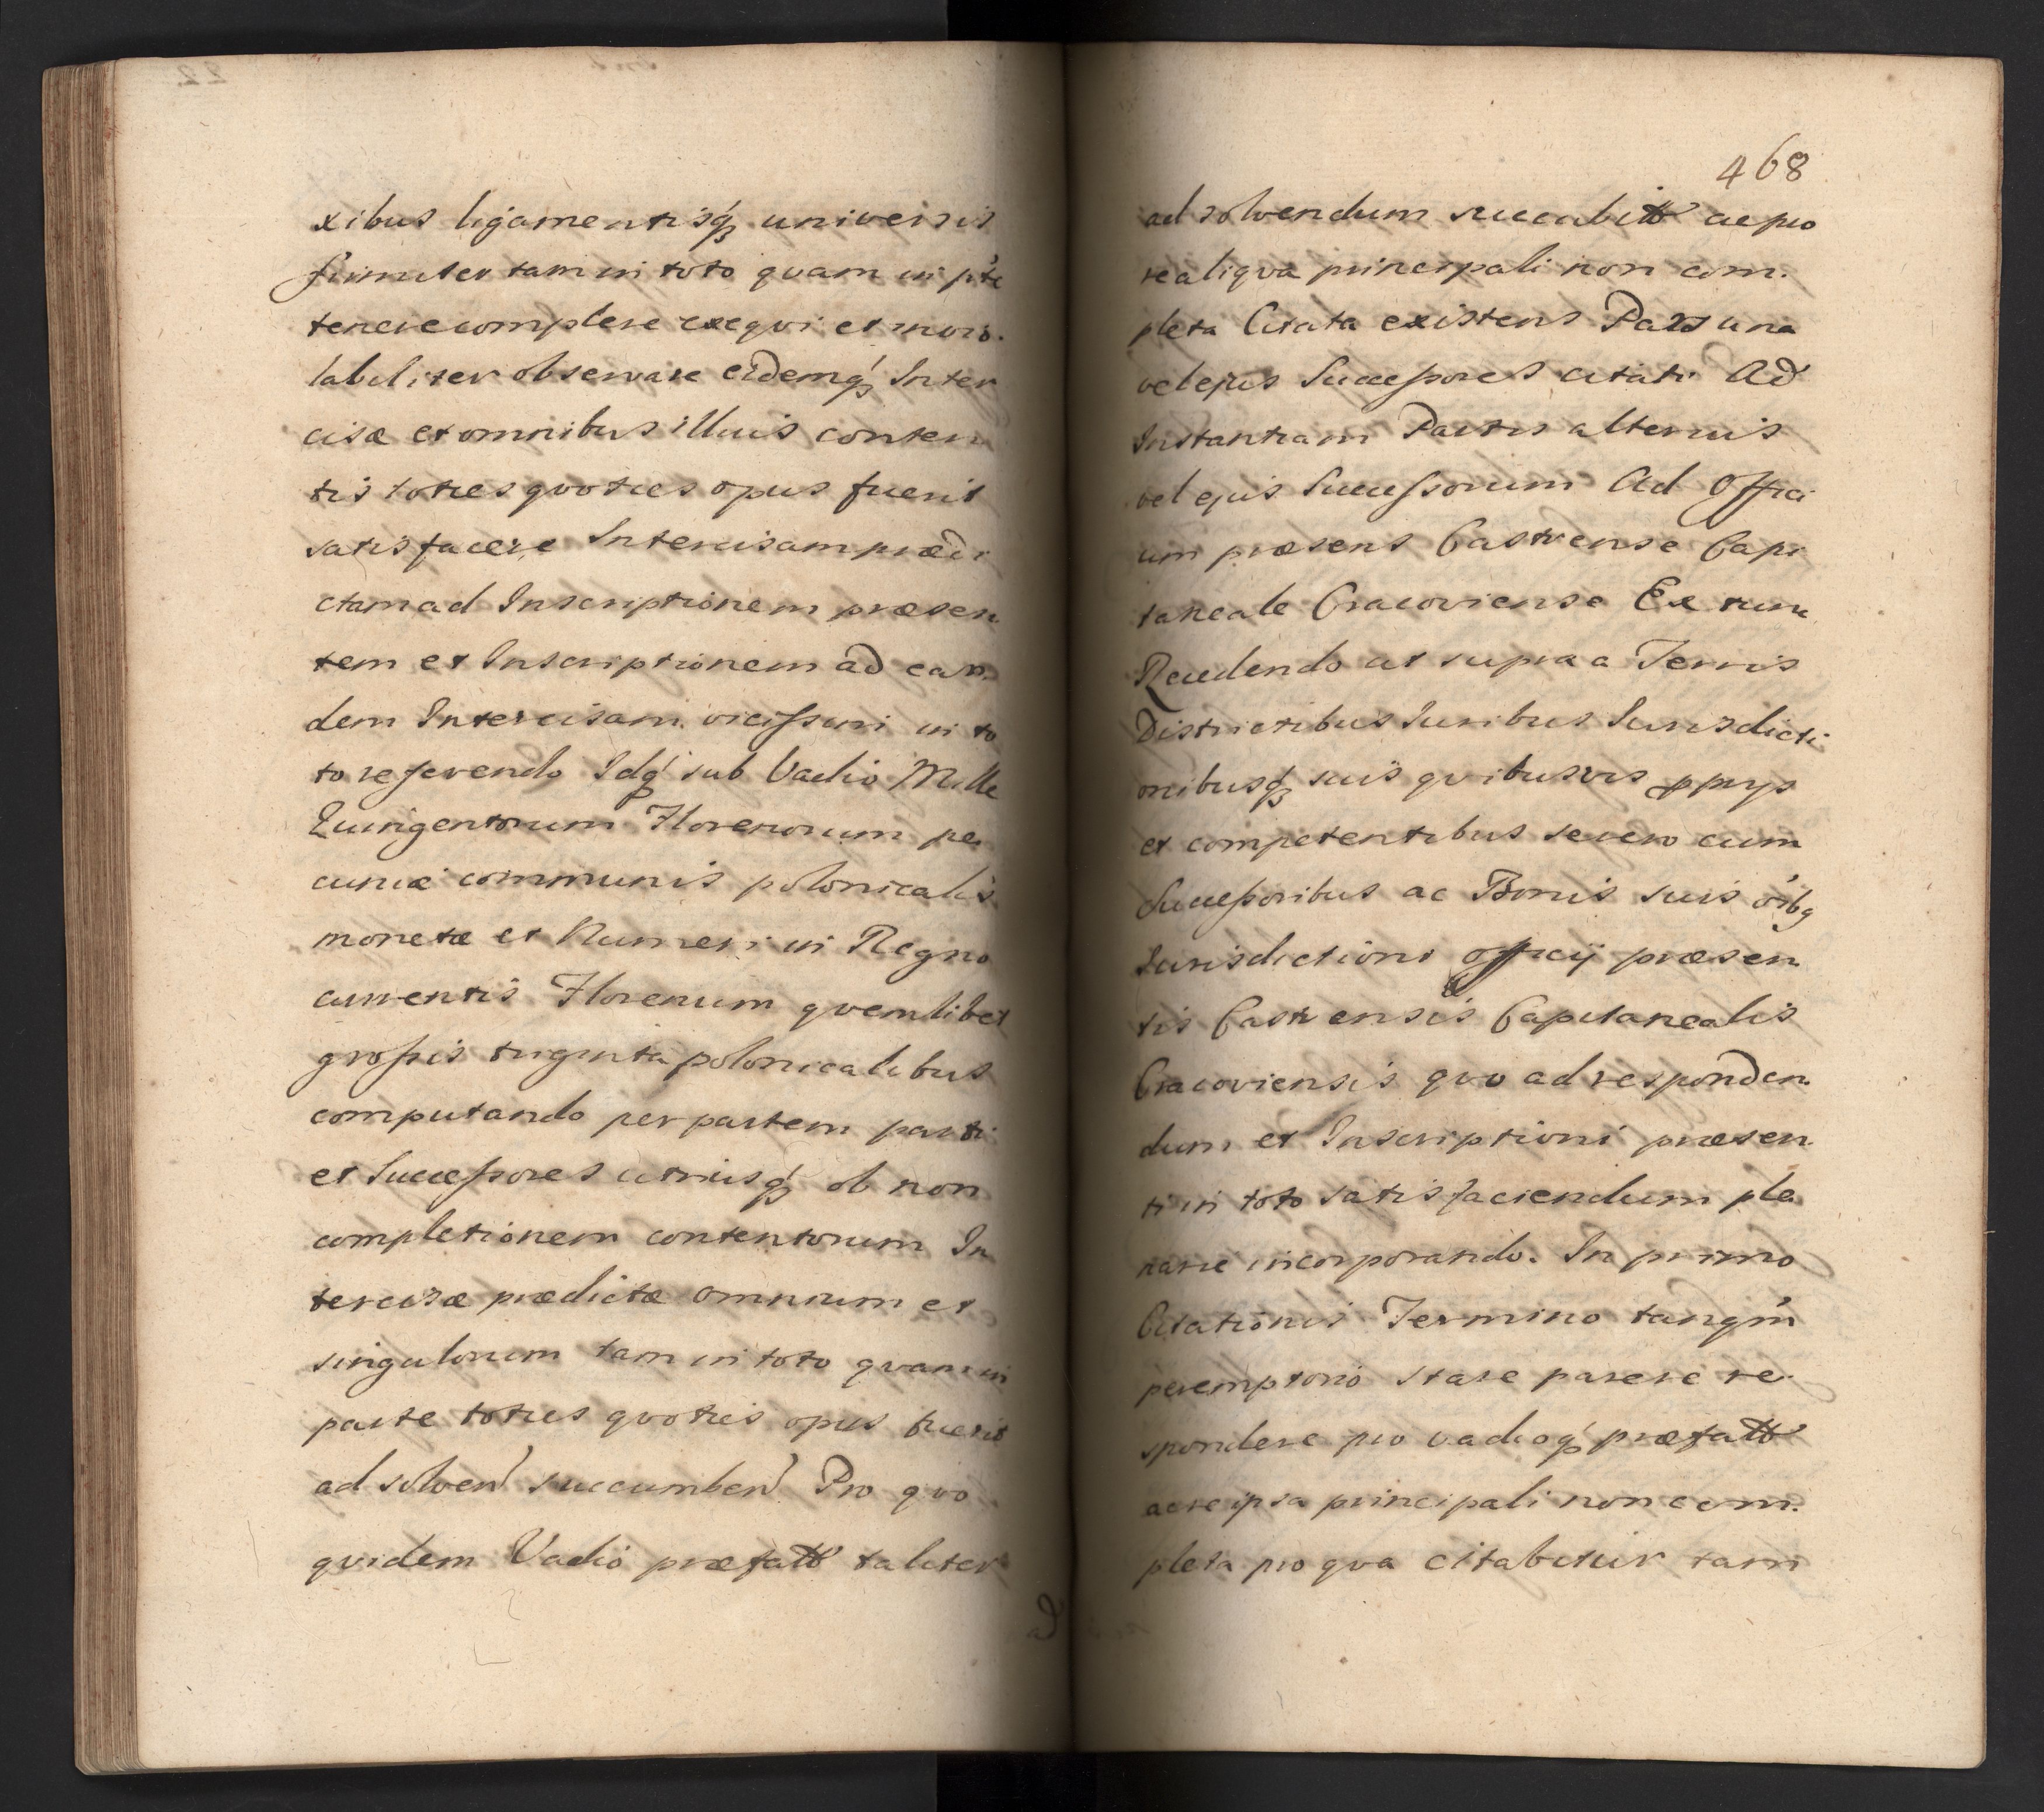 xibus ligamentisq́ꝫ universis
firmiter tam in toto quam in pte
tenere complere exequi et invio-
labiliter observare eidemq́ꝫ Inter
cisæ et omnibus illius conten
tis toties quoties opus fuerit
satisfacere Intercisam prædi
ctam ad Inscriptionem præsen
tem et Inscriptionem ad ean-
dem Intercisam vicissim in to
to referendo Idq́ꝫ sub Vadio Mille
Quingentorum Florenorum pe
cuniæ communis polonicalis
monetæ et Numeri in Regno
currentis Florenum qvemlibet
grossis triginta polonicalibus
computando per partem parti
et Successores utriusq́ꝫ ob non
completionem contentorum In
tercisæ prædictæ omnium et
singulorum tam in toto qvam in
parte toties qvoties opus fuerit
ad solven succumben Pro qvo
qvidem Vadio præfatto taliter
468
ad solvendum succubitto ac pro
re aliqva principali non com-
pleta Citata existens Pars una
vel ejus Successores citati Ad
Instantiam Partis alterius
vel ejus Successorum Ad Offici
um præsens Castrense Capi
taneale Cracoviense Ex tunc
Recedendo ut supra a Terris
Districtibus Iuribus Iurisdicti
onibusq́ꝫ suis qvibusvis ꝓprys
et competentibus se vero cum
Successoribus ac Bonis suis oibq
Iurisdictioni officij præsen
tis Castrensis Capitanealis
Cracoviensis qvo ad responden
dum et Inscriptioni præsen
ti in toto satisfaciendum ple
narie incorporando. In primo
Citationis Termino tanqm
peremptorio stare parere re-
spondere pro vadioq́ꝫ præfatto
ac re ipsa principali non com-
pleta pro qva citabitur tam